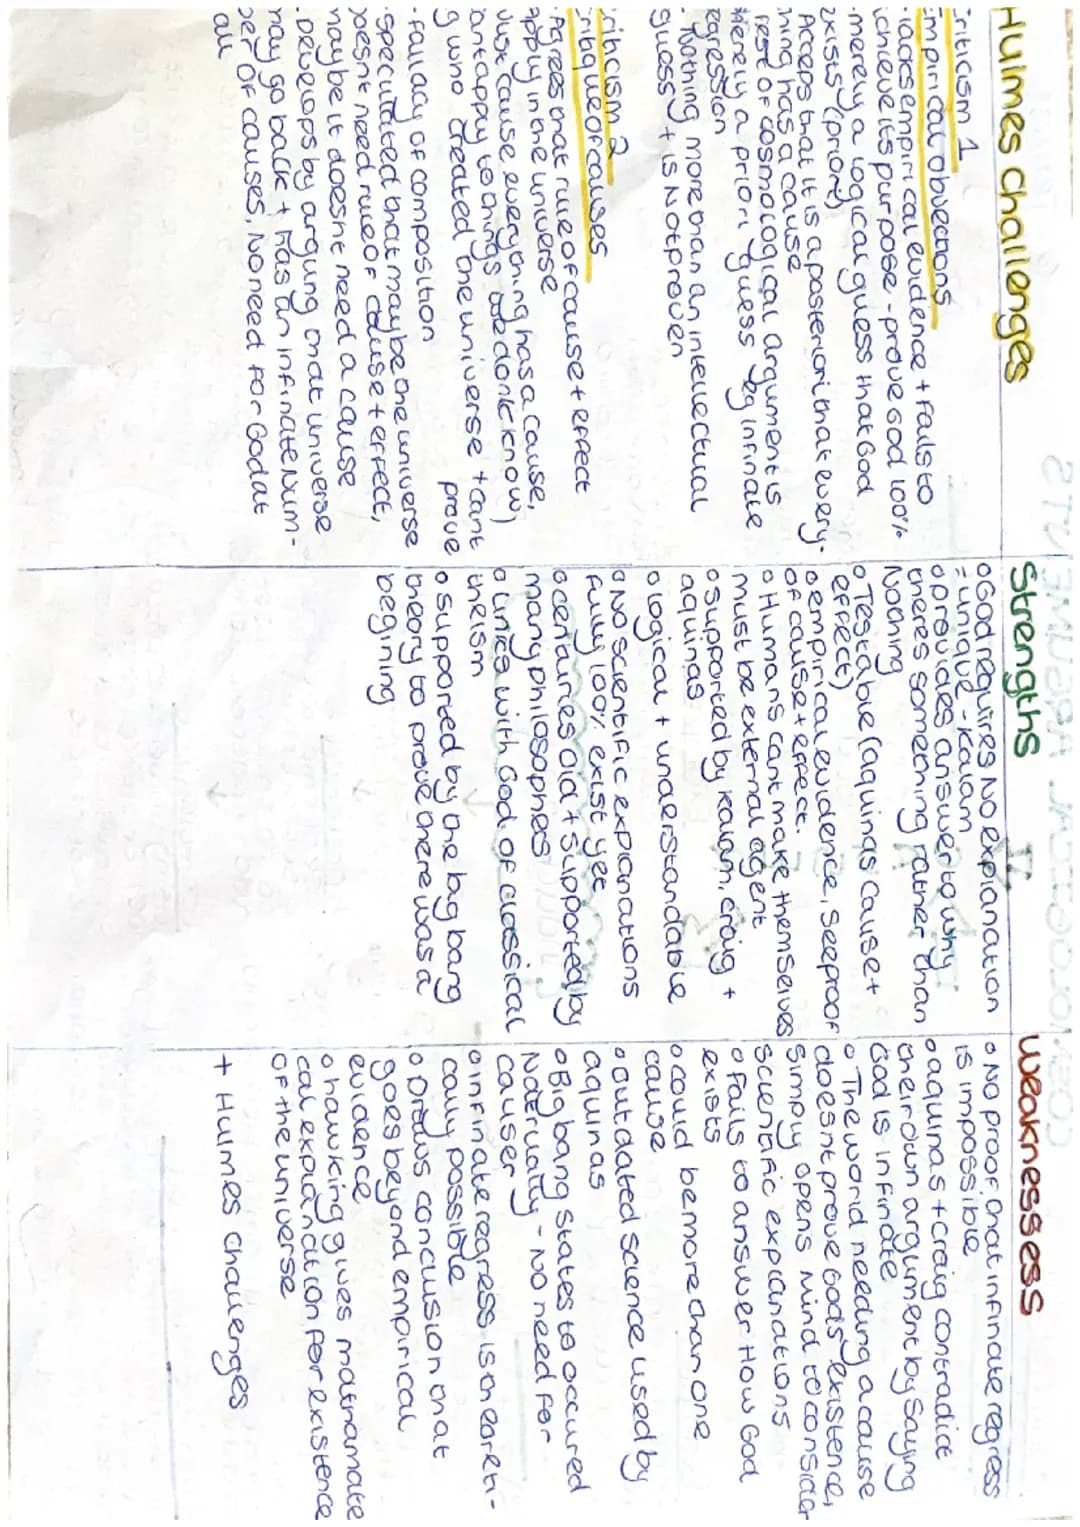 Humes challenges
criticism 1
Empirical objections
· lacks empirical evidence + fails to
achieve its purpose - prove God 100%
· merely a logical guess that God
exists (priori)
· Accepts that it is aposteriori that every-
thing has a cause
· rest of cosmological argument is
merely a priori guess eg infinate
regression
· Nothing more than an intellectual
guess + is Not proven
criticism 2
critique of causes
· Agrees that rule of cause + effect
apply in the universe
Just cause, everything has a cause,
cant appay to things we dont know)
g who created the universe + cant
prove
· fallacy of composition
· speculated that maybe one universe
doesnt need rule of cause + effect,
maybe it doesnt need a cause
· Develops by arguing that universe
may go back + has an infinate Num-
ber of causes, No need for God at
all
Strengths
o God requires No explanation
= unique - Kalam
o provides answer to why
theres something rather than
Nothing
o Testable (aquinas cause +
effect)
o empirical evidence, see proof
of cause + effect.
o Humans cant make themselves
must be external agent
o supported by Kalam, craig +
aquinas
o logical + understandable
o No scientific explanations
fully 100% exist yet
o centuries old + supported by
many philosophers
o links with God of classical
theism
o supported by the big bang
theory to prove there was a
begining
weaknesses
o No proof that infinate regress
is impossible
o aquinas + craig contradict
their own argument by saying
God is infinate
o The world needing a cause
doesnt prove Gods existence,
simply opens mind to consider
scientific explanations
o Fails to answer How God
exists
o could be more than one
cause
o outdated science used by
aquinas
o Big bang states to occured
Naturually - No need for
causer
o infinate regress is theoreti-
cally possible
o Draws conclusion that
goes beyond empirical
evidence
o hawking gives mathamate
cal explanation for existence
of the universe
+ Humes challenges